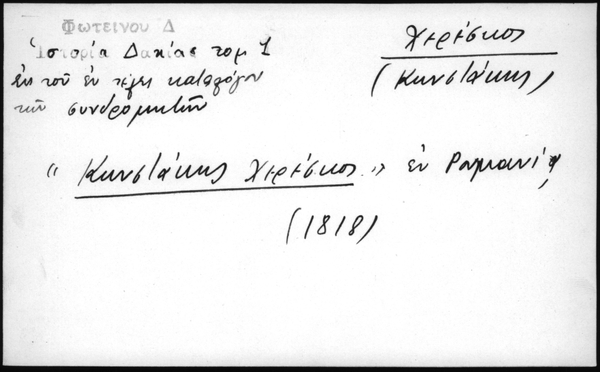 Φωτεινου Δ
Ἱστορία Δακίας τομ 1
ἐκ τοῦ ἐν τέλει καταλόγου
τῶν συνδρομητῶν
Χερέσκος
(Κωνστάκης)
"Κωνστάκης Χερέσκος" ἐν Ρωμανίῳ
(1818)